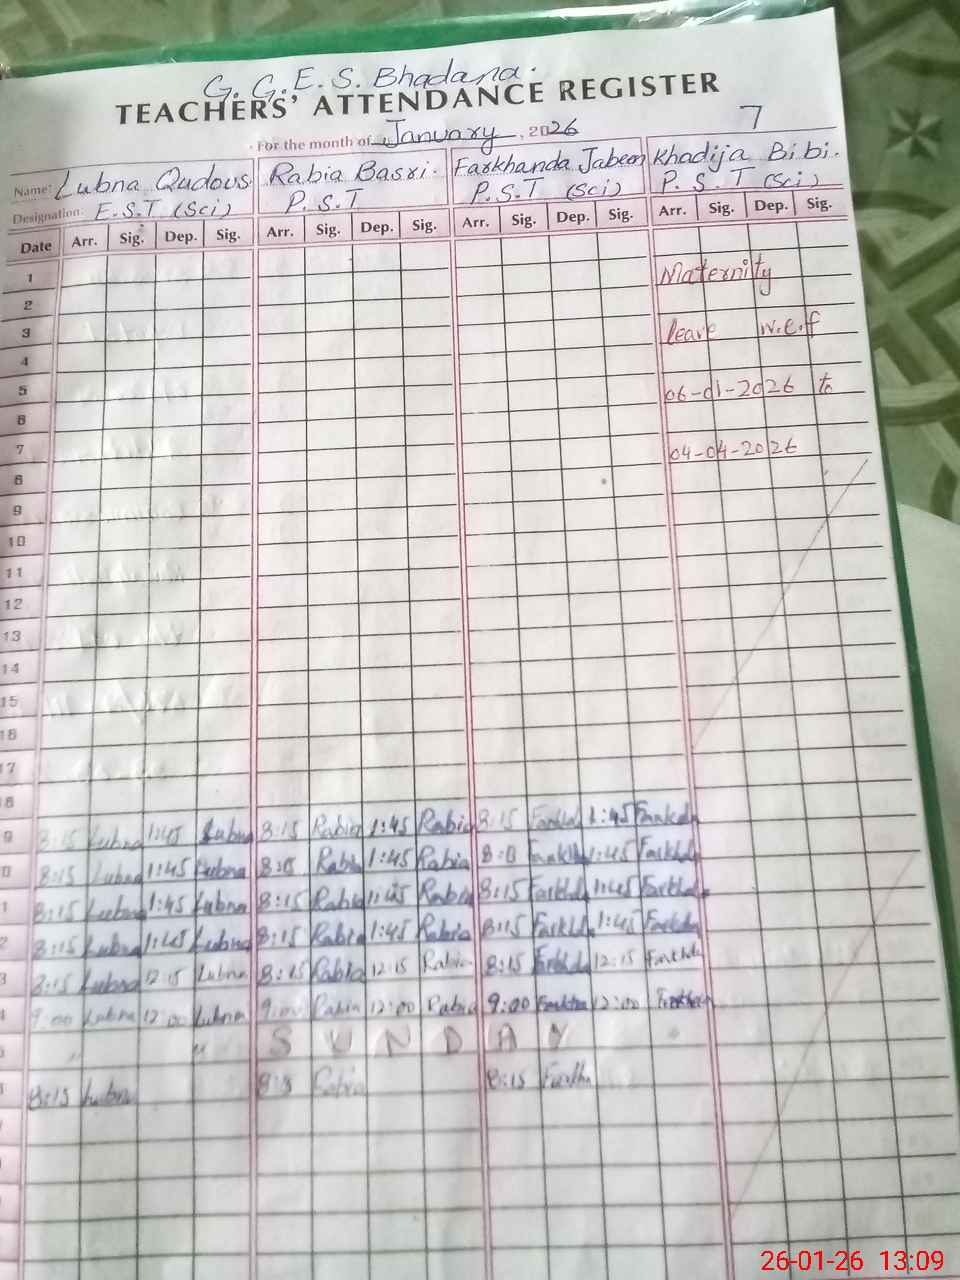 G. G. E. S. Bhadana.
TEACHERS' ATTENDANCE REGISTER
For the month of January, 2026 7
Name: Lubna Qudous Rabia Basri. Farkhanda Jabeen Khadija Bibi.
Designation. E.S.T (Sci) P.S.T P.S.T (Sci) P.S.T (Sci)
Date Arr. Sig. Dep. Sig. Arr. Sig. Dep. Sig. Arr. Sig. Dep. Sig. Arr. Sig. Dep. Sig.
1 Maternity
2
3 leave w.e.f
4
5 06-01-2026 to
6
7 04-04-2026
8
9
10
11
12
13
14
15
16
17
8
9 8:15 Lubna 1:45 Lubna 8:15 Rabia 1:45 Rabia 8:15 1:45
0 8:15 Lubna 1:45 Lubna Rabia 1:45 Rabia 1:45
1 8:15 Lubna 1:45 Lubna 8:15 Rabia 1:45 Rabia 8:15 1:45
2 8:15 Lubna 1:45 Lubna 8:15 Rabia 1:45 Rabia 8:15 1:45
3 8:15 Lubna 12:15 Lubna 8:15 Rabia 12:15 Rabia 8:15 12:15
4 9:00 Lubna 12:00 Lubna 9:00 Rabia 12:00 Rabia 9:00 12:00
SUNDAY
8:15 Lubna Rabia 8:15
26-01-26 13:09